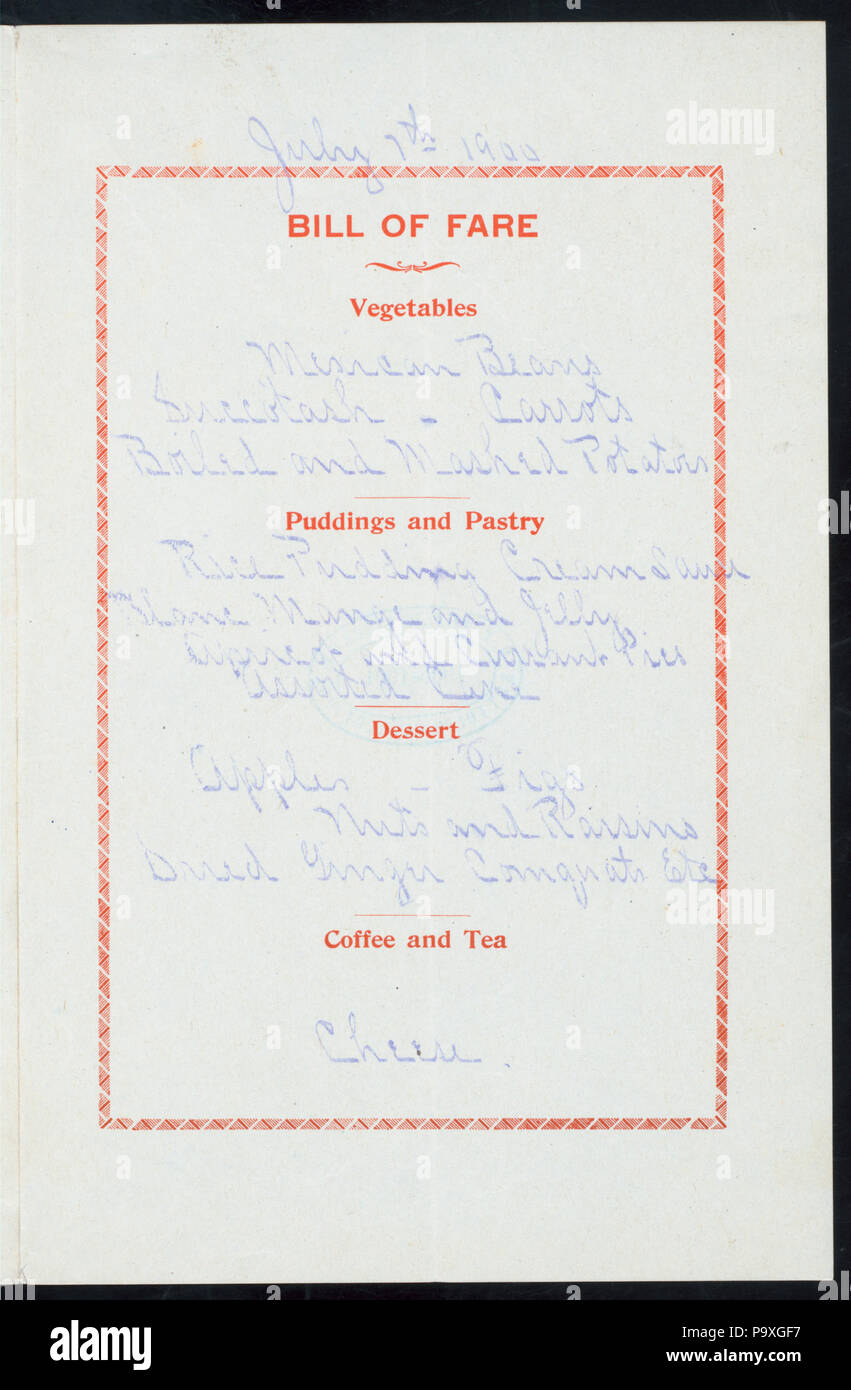 July 7th 1900
BILL OF FARE
Vegetables
Mexican Beans
Succotash - Carrots
Boiled and Mashed Potatoes
Puddings and Pastry
Rice Pudding Cream Sauce
Blanc Mange and Jelly
Apricot and Currant Pies
Assorted Cake
Dessert
Apples - Figs
Nuts and Raisins
Dried Ginger Comquats Etc
Coffee and Tea
Cheese.
alamy
alamy
Image ID: P9XGF7
www.alamy.com